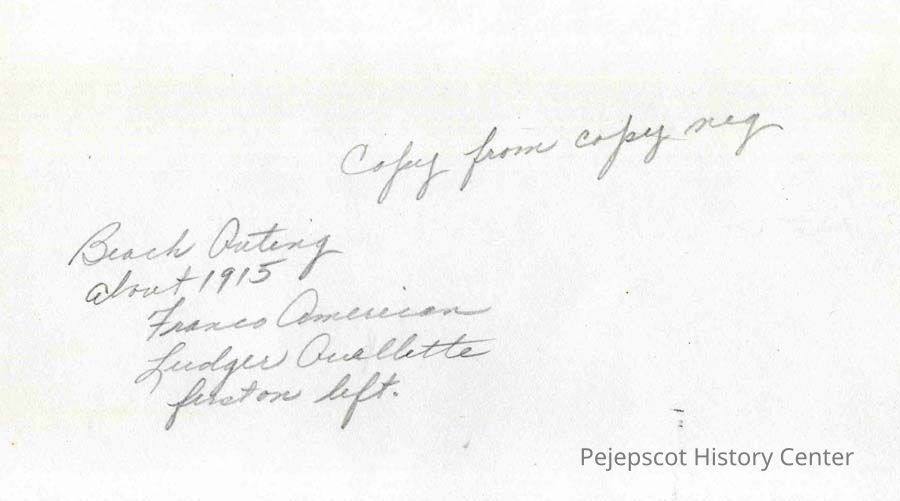 Copy from copy neg
Beach Outing
about 1915
Franco American
Ludger Ouellette
first on left.
Pejepscot History Center